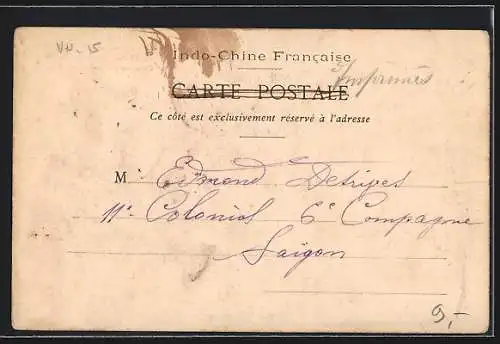 VN-15
Indo-Chine Française
Imprimés
CARTE POSTALE
Ce côté est exclusivement réservé à l'adresse
M Edmond Detriges
11e Colonial 6e Compagnie
Saigon
9,-